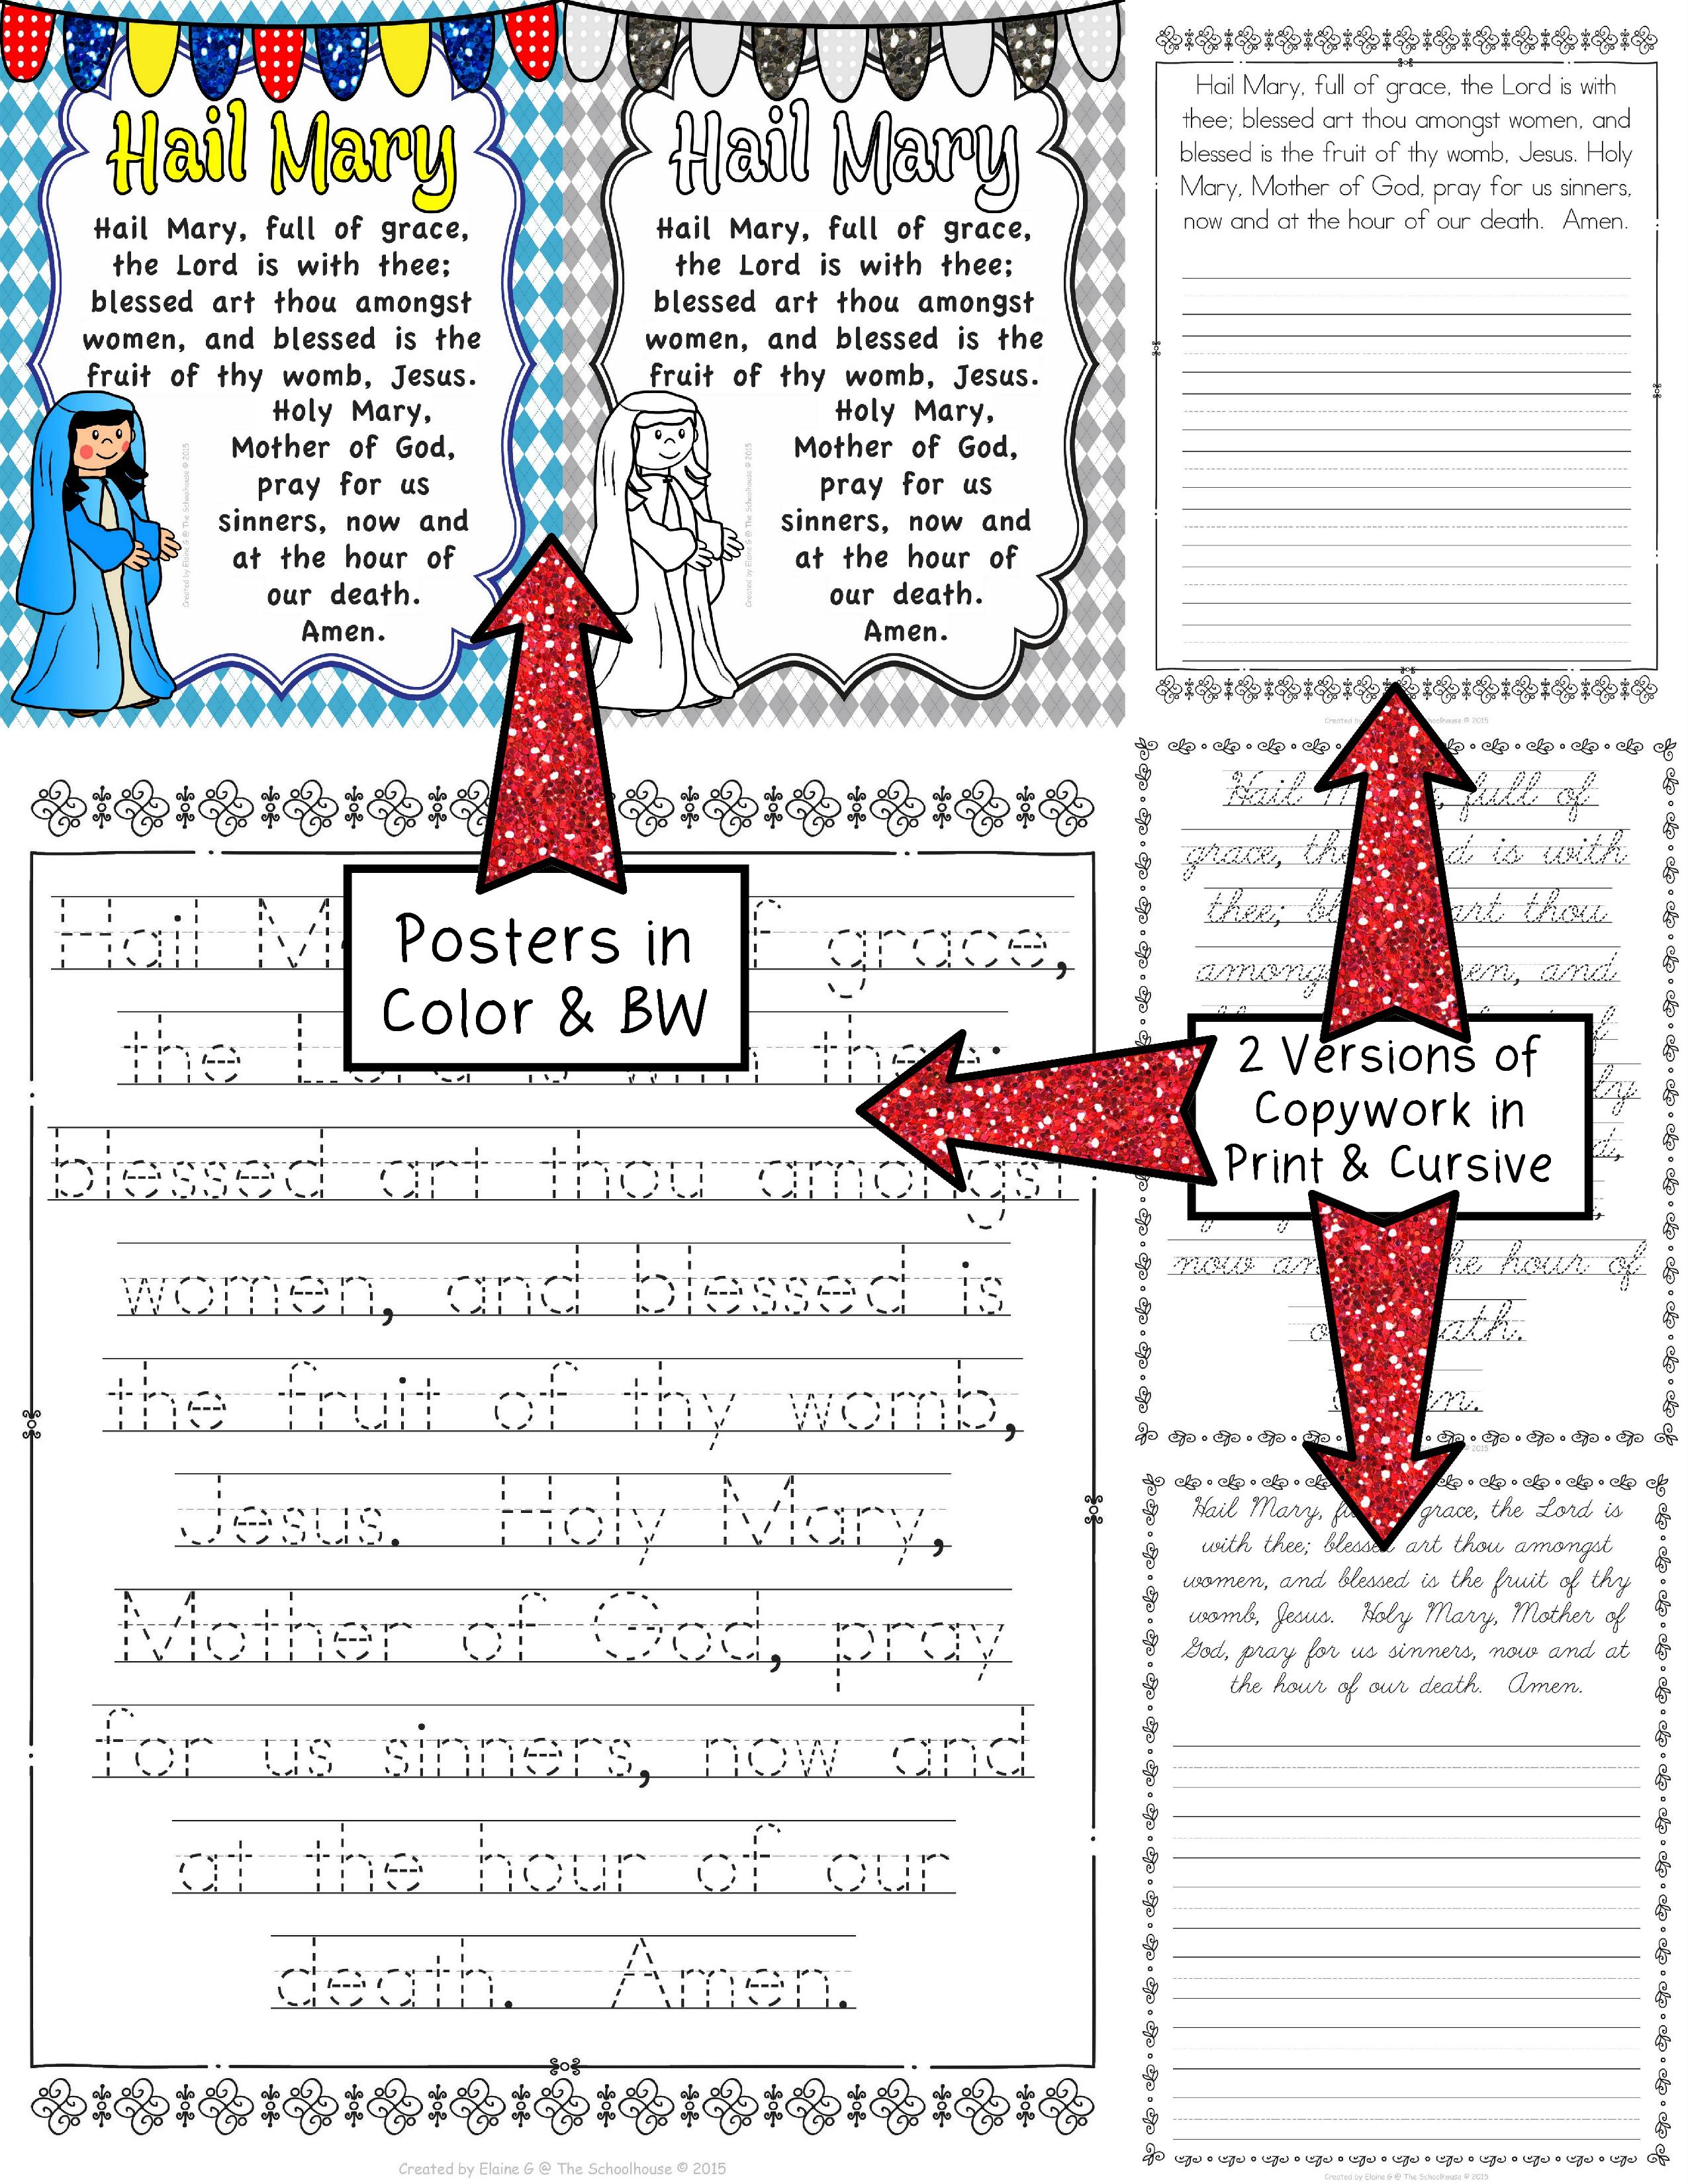 Hail Mary
Hail Mary, full of grace,
the Lord is with thee;
blessed art thou amongst
women, and blessed is the
fruit of thy womb, Jesus.
Holy Mary,
Mother of God,
pray for us
sinners, now and
at the hour of
our death.
Amen.
Created by Elaine G @ The Schoolhouse © 2015
Hail Mary
Hail Mary, full of grace,
the Lord is with thee;
blessed art thou amongst
women, and blessed is the
fruit of thy womb, Jesus.
Holy Mary,
Mother of God,
pray for us
sinners, now and
at the hour of
our death.
Amen.
Created by Elaine G @ The Schoolhouse © 2015
Hail Mary, full of grace, the Lord is with
thee; blessed art thou amongst women, and
blessed is the fruit of thy womb, Jesus. Holy
Mary, Mother of God, pray for us sinners,
now and at the hour of our death. Amen.
Created by hoolhouse © 2015
Posters in
Color & BW
Hail grace,
the
blessed art thou amongst
women, and blessed is
the fruit of thy womb,
Jesus. Holy Mary,
Mother of God, pray
for us sinners, now and
at the hour of our
death. Amen.
Created by Elaine G @ The Schoolhouse © 2015
Hail full of
grace, is with
thee; art thou
and
now hour of
2015
2 Versions of
Copywork in
Print & Cursive
Hail Mary, grace, the Lord is
with thee; blessed art thou amongst
women, and blessed is the fruit of thy
womb, Jesus. Holy Mary, Mother of
God, pray for us sinners, now and at
the hour of our death. Amen.
Created by Elaine G @ The Schoolhouse © 2015